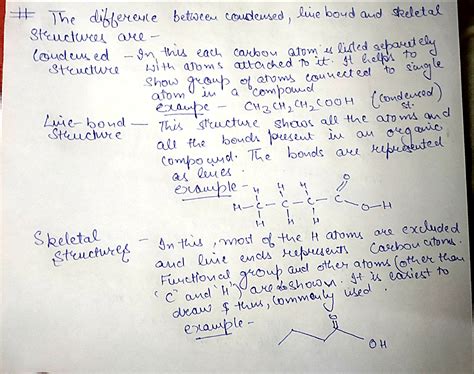 # The difference between condensed, line bond and skeletal
structures are -
Condensed - In this each carbon atom is listed separately
Structure with atoms attached to it. It helps to
show group of atoms connected to single
atom in a compound
example - CH3CH2CH2COOH (condensed)
st.
Line-bond - This structure shows all the atoms and
Structure all the bonds present in an organic
compound. The bonds are represented
as lines.
example -
H H H O
H-C-C-C-C
H H H O-H
Skeletal - In this, most of the H atoms are excluded
Structures and line ends represents Carbon atoms.
Functional group and other atoms (other than
"C" and "H") are shown. It is easiest to
draw & thus, commonly used.
example -
O
OH